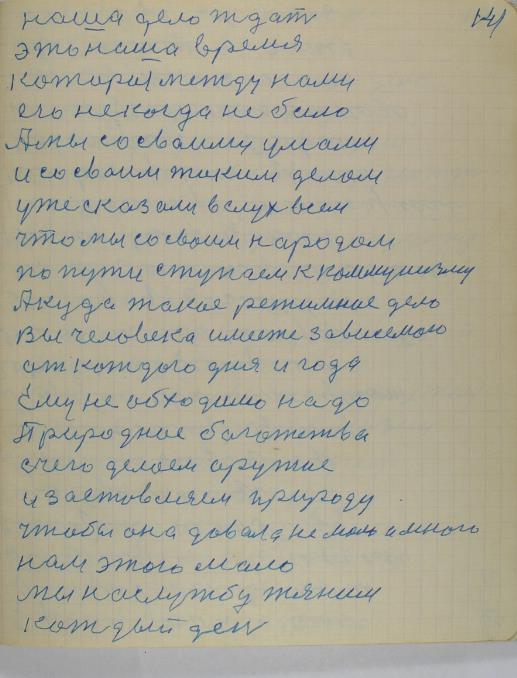 141
наша дело ждат
это наша время
которая между нами
его некогда не было
А мы со своими умами
и со своим таким делом
уже сказали вслух всем
что мы со своим народом
по пути ступаем к коммунизму
А куда такое режимное дело
Вы человека имеете зависемою
от каждого дня и года
Ему не обходимо надо
Природное богожетва
с чего делаем оружие
и застовляем природу
чтобы она довала не мало а много
нам этого мало
мы на службу тяним
каждый ден